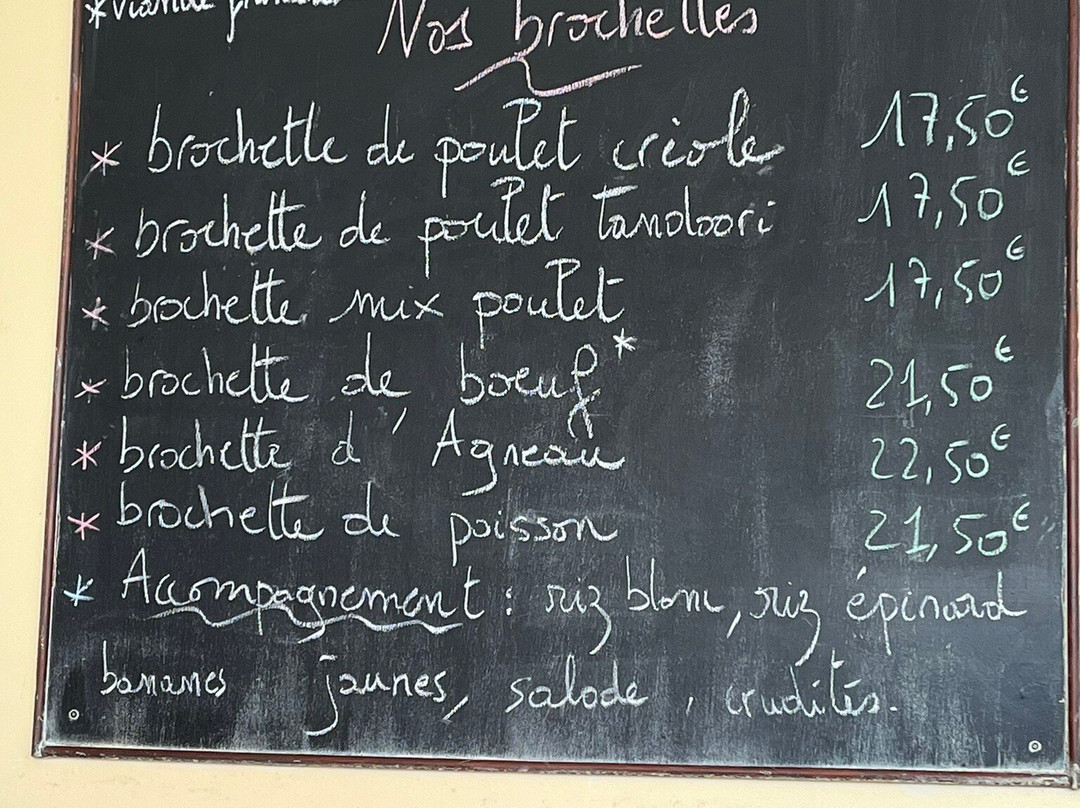 *Viande
Nos brochettes
* brochette de poulet créole 17,50€
* brochette de poulet Tandoori 17,50€
* brochette mix poulet 17,50€
* brochette de boeuf* 21,50€
* brochette d'Agneau 22,50€
* brochette de poisson 21,50€
* Accompagnement : riz blanc, riz épinard
bananes jaunes, salade, crudités.